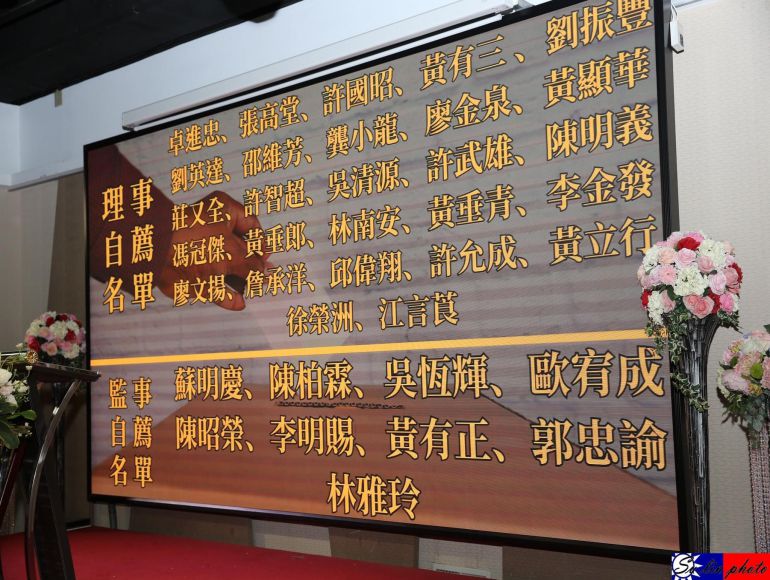 理事
自薦
名單
卓進忠、張高堂、許國昭、黃有三、劉振豐
劉英達、邵維芳、龔小龍、廖金泉、黃顯華
莊又全、許智超、吳清源、許武雄、陳明義
馮冠傑、黃重郎、林南安、黃垂青、李金發
廖文揚、詹承洋、邱偉翔、許允成、黃立行
徐榮洲、江言莨
監事
自薦
名單
蘇明慶、陳柏霖、吳恆輝、歐宥成
陳昭榮、李明賜、黃有正、郭忠諭
林雅玲
photo